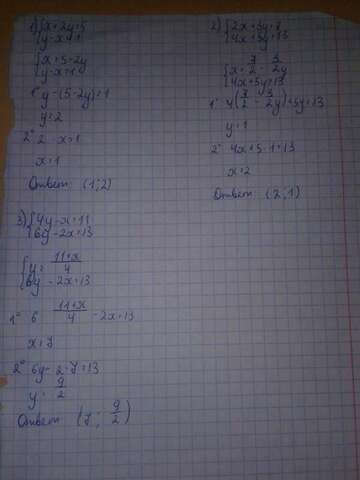 1) { x + 2y = 5
{ y - x = 1
{ x = 5 - 2y
{ y - x = 1
1° y - (5 - 2y) = 1
y = 2
2° 2 - x = 1
x = 1
Ответ (1; 2)
2) { 2x + 3y = 7
{ 4x + 5y = 13
{ x = 7/2 - 3/2y
{ 4x + 5y = 13
1° 4(7/2 - 3/2y) + 5y = 13
y = 1
2° 4x + 5 · 1 = 13
x = 2
Ответ (2; 1)
3) { 4y - x = 11
{ 6y - 2x = 13
{ y = 11+x/4
{ 6y - 2x = 13
1° 6 11+x/4 - 2x = 13
x = 7
2° 6y - 2 · 7 = 13
y = 9/2
Ответ (7; 9/2)